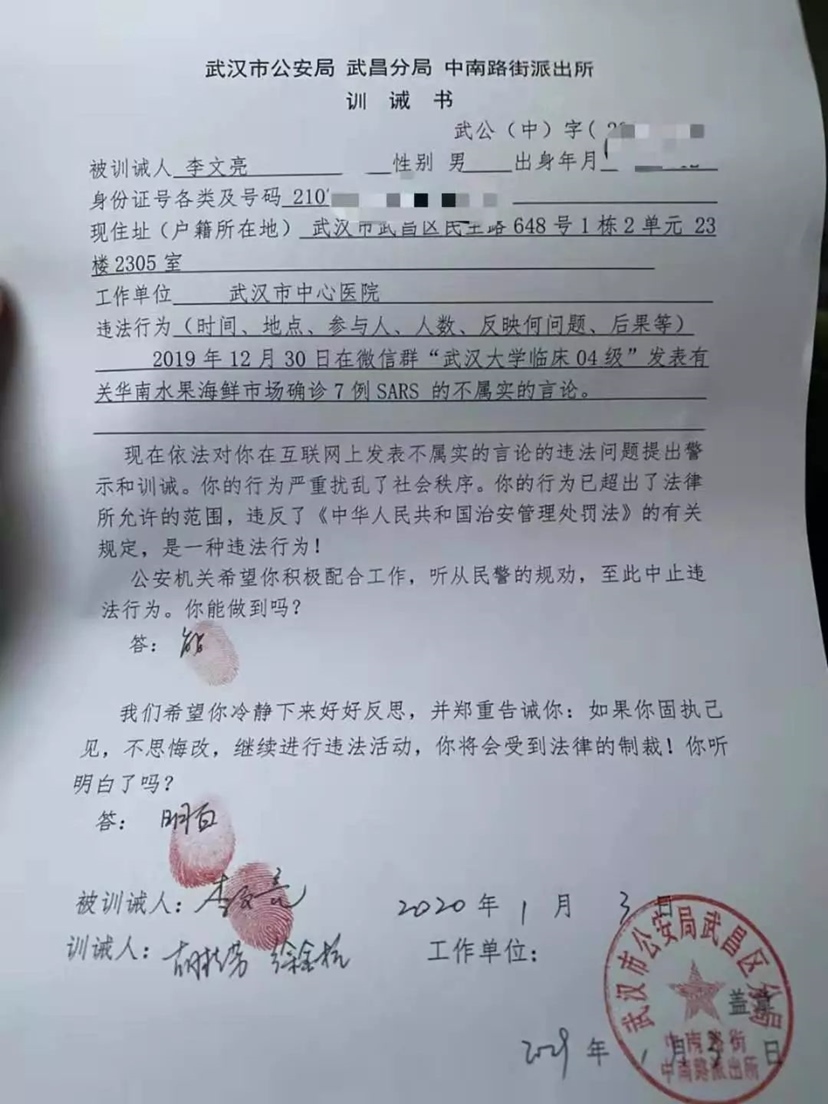 武汉市公安局 武昌分局 中南路街派出所
训 诫 书
武公（中）字（
被训诫人 李文亮 性别 男 出身年月
身份证号各类及号码 210
现住址（户籍所在地） 武汉市武昌区民主路 648 号 1 栋 2 单元 23
楼 2305 室
工作单位 武汉市中心医院
违法行为（时间、地点、参与人、人数、反映何问题、后果等）
2019 年 12 月 30 日在微信群“武汉大学临床 04 级”发表有
关华南水果海鲜市场确诊 7 例 SARS 的不属实的言论。
现在依法对你在互联网上发表不属实的言论的违法问题提出警
示和训诫。你的行为严重扰乱了社会秩序。你的行为已超出了法律
所允许的范围，违反了《中华人民共和国治安管理处罚法》的有关
规定，是一种违法行为！
公安机关希望你积极配合工作，听从民警的规劝，至此中止违
法行为。你能做到吗？
答： 能
我们希望你冷静下来好好反思，并郑重告诫你：如果你固执己
见，不思悔改，继续进行违法活动，你将会受到法律的制裁！你听
明白了吗？
答： 明白
被训诫人：李文亮 2020 年 1 月 3 日
训诫人： 工作单位：
盖章
年 1 月 3 日
武汉市公安局武昌区分局
中南路街
中南路派出所